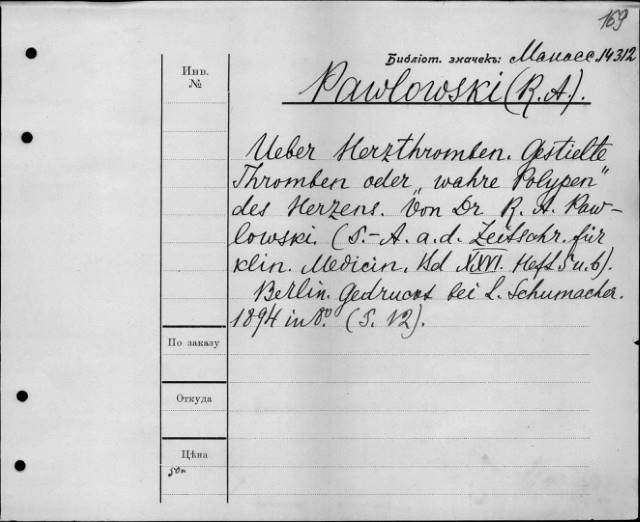 169
Библіот. значекъ: Манасс 14312
Инв.
№
Pawlowski (R. A.).
Ueber Herzthromben. Gestielte
Thromben oder „wahre Polypen"
des Herzens. Von Dr R. A. Paw-
lowski. (S.-A. a. d. Zeitschr. für
klin. Medicin. Bd XXVI. Heft 5 u. 6).
Berlin. Gedruckt bei L. Schumacher.
1894 in 8º. (S. 12).
По заказу
Откуда
Цѣна